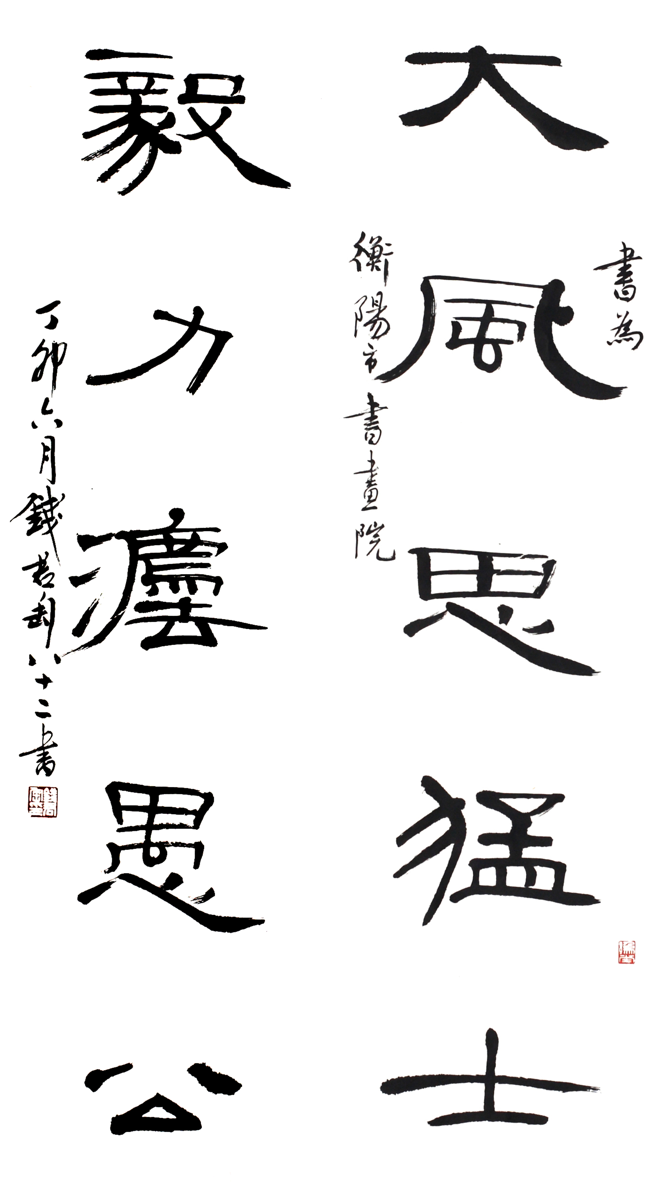 書為
大風思猛士
衡陽市書畫院
毅力灋愚公
丁卯六月錢君匋八十二書